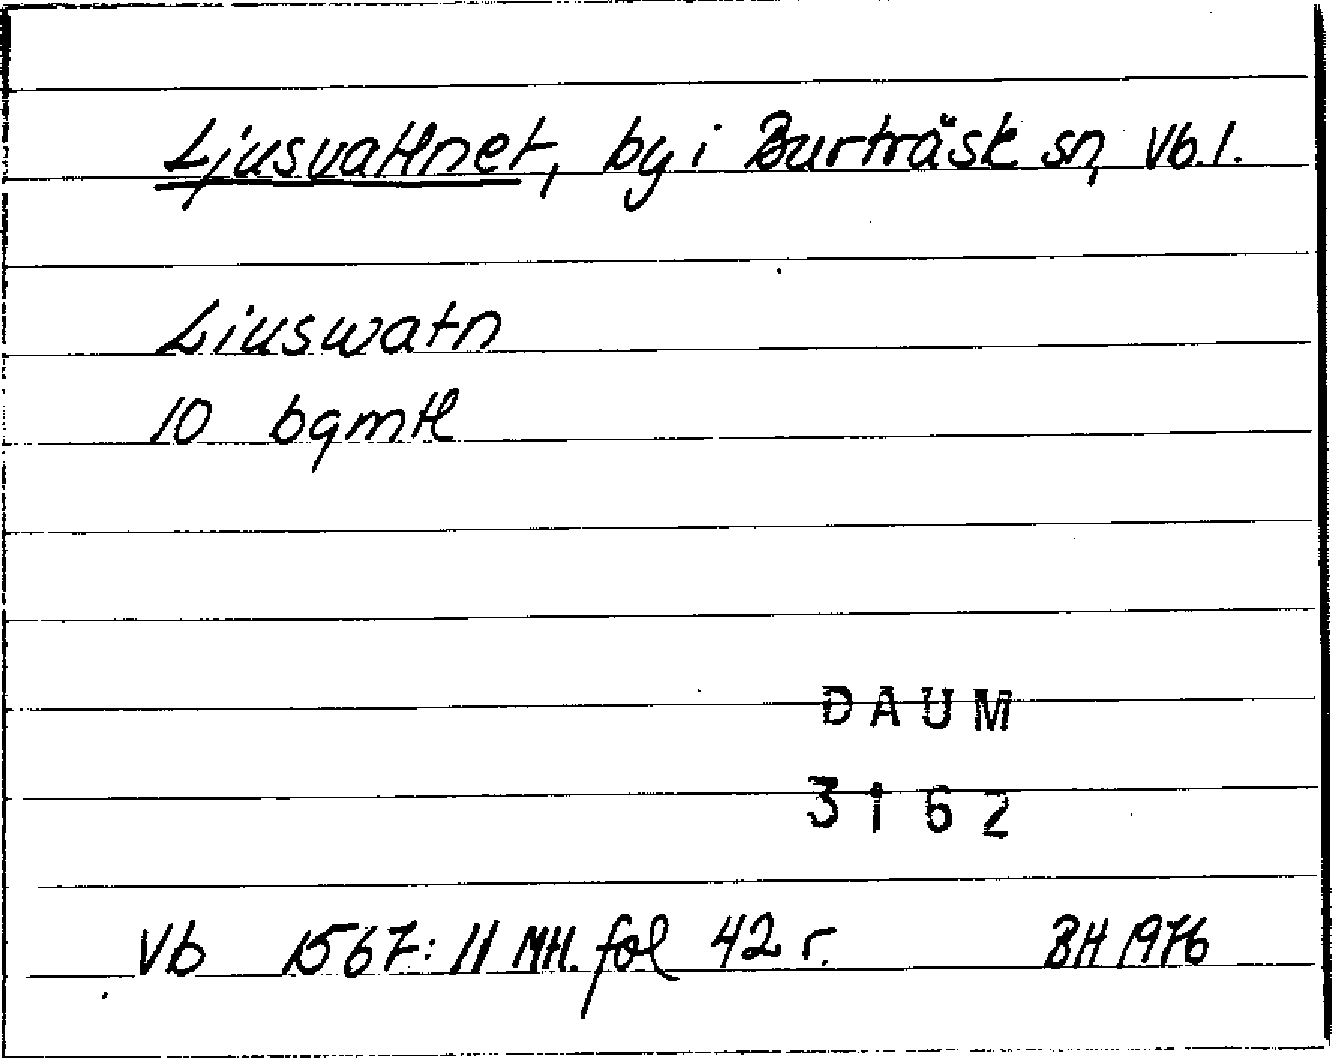 Ljusvattnet, by i Burträsk sn, Vb. l.
Liuswatn
10 bgmtl
DAUM
3162
Vb 1567: 11 MH. fol 42 r. BH 1976